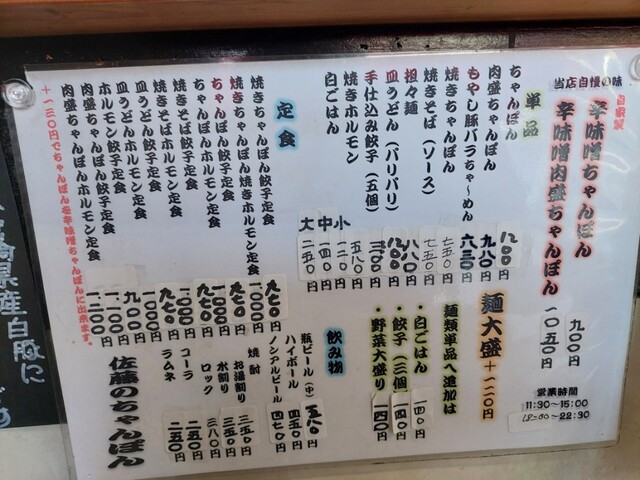 当店自慢の味
自家製
辛味噌ちゃんぽん 九〇〇円
辛味噌肉盛ちゃんぽん 一〇五〇円
営業時間
11:30〜15:00
18:00〜22:30
単品
ちゃんぽん 八〇〇円
肉盛ちゃんぽん 九八〇円
もやし豚バラちゃ〜めん 六三〇円
焼きちゃんぽん 七五〇円
焼きそば(ソース) 七五〇円
担々麺 八八〇円
皿うどん(パリパリ) 八〇〇円
手仕込み餃子(五個) 三〇〇円
焼きホルモン 五八〇円
白ごはん
小 一二〇円
中 一四〇円
大 二五〇円
麺大盛+一二〇円
麺類単品へ追加は
・白ごはん 一四〇円
・餃子(三個) 一四〇円
・野菜大盛り 一四〇円
定食
焼きちゃんぽん餃子定食 九七〇円
焼きちゃんぽん焼きホルモン定食 一〇〇〇円
ちゃんぽん餃子定食 九七〇円
ちゃんぽんホルモン定食 一〇〇〇円
焼きそば餃子定食 九七〇円
焼きそばホルモン定食 一〇〇〇円
皿うどん餃子定食 九七〇円
皿うどんホルモン定食 一〇〇〇円
ホルモン餃子定食 九〇〇円
肉盛ちゃんぽん餃子定食 一一〇〇円
肉盛ちゃんぽんホルモン定食 一二〇〇円
+一三〇円でちゃんぽんを辛味噌ちゃんぽんに出来ます。
飲み物
瓶ビール(中) 五八〇円
ハイボール 四五〇円
ノンアルビール 四七〇円
焼酎
お湯割り 三五〇円
水割り 三五〇円
ロック 三八〇円
コーラ 二五〇円
ラムネ 二五〇円
佐藤のちゃんぽん
宮崎県産白豚に